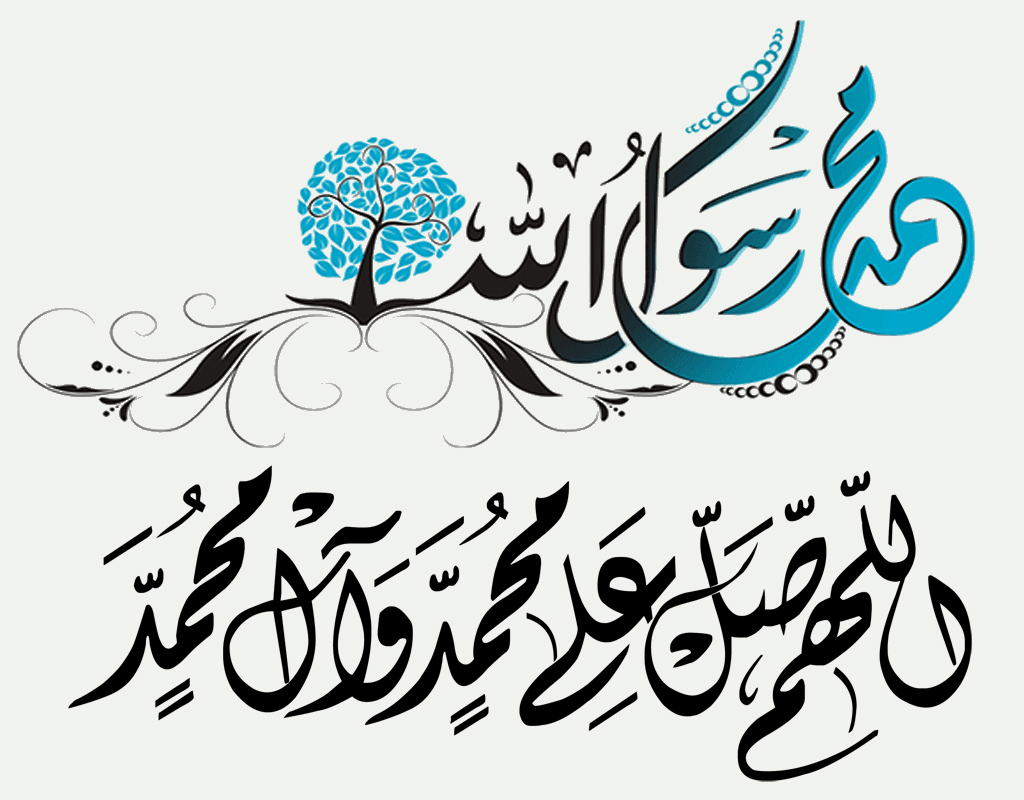 محمد رسول الله
اللهم صل على محمد وآل محمد